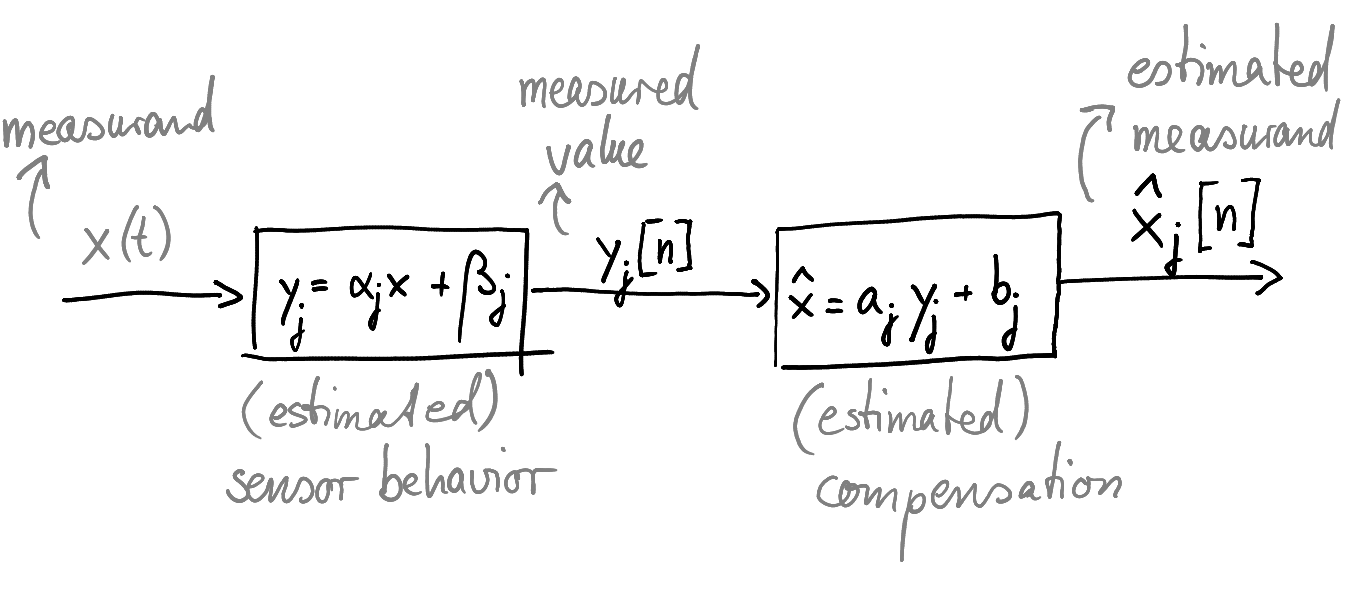 measurand
x(t)
y_j = α_j x + β_j
(estimated)
sensor behavior
measured
value
y_j[n]
x̂ = a_j y_j + b_j
(estimated)
compensation
estimated
measurand
x̂_j[n]